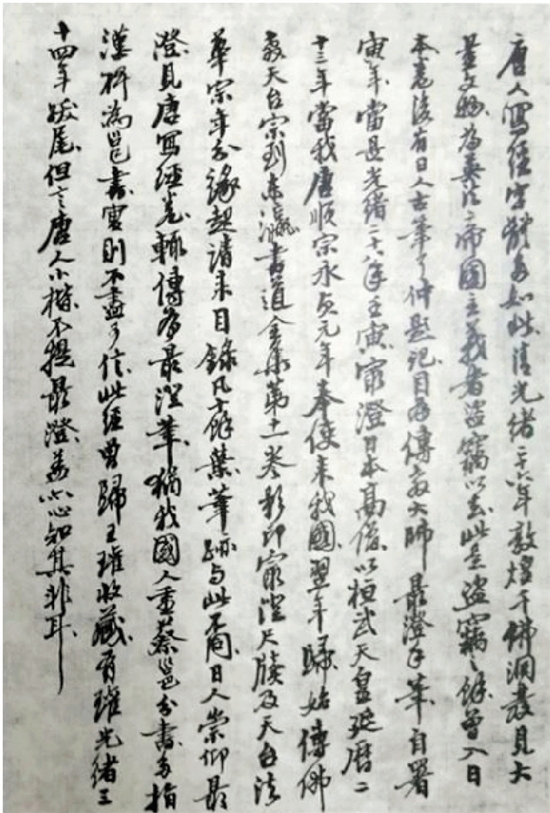 唐人寫經字體多如此清光緒二十六年敦煌千佛洞發見大
量文物為英法帝國主義者盜竊以去此是盜竊之餘曾入日
本卷後有日人古筆了仲題記目為傳教大師最澄手筆自署
寅年當是光緒二十八年壬寅最澄日本高僧以桓武天皇延曆二
十三年當我唐順宗永貞元年奉使來我國翌年歸始傳佛
教天台宗到東瀛書道全集第十一卷影印最澄尺牘及天台法
華宗年分緣起請來目錄凡十餘葉筆跡與此不同日人崇仰最
澄見唐寫經卷輒傳為最澄筆猶我國人重蔡邕分書多指
漢碑為邕書實則不盡可信此經曾歸王瓘收藏有瓘光緒三
十四年跋尾但言唐人小楷不提最澄蓋心知其非耳